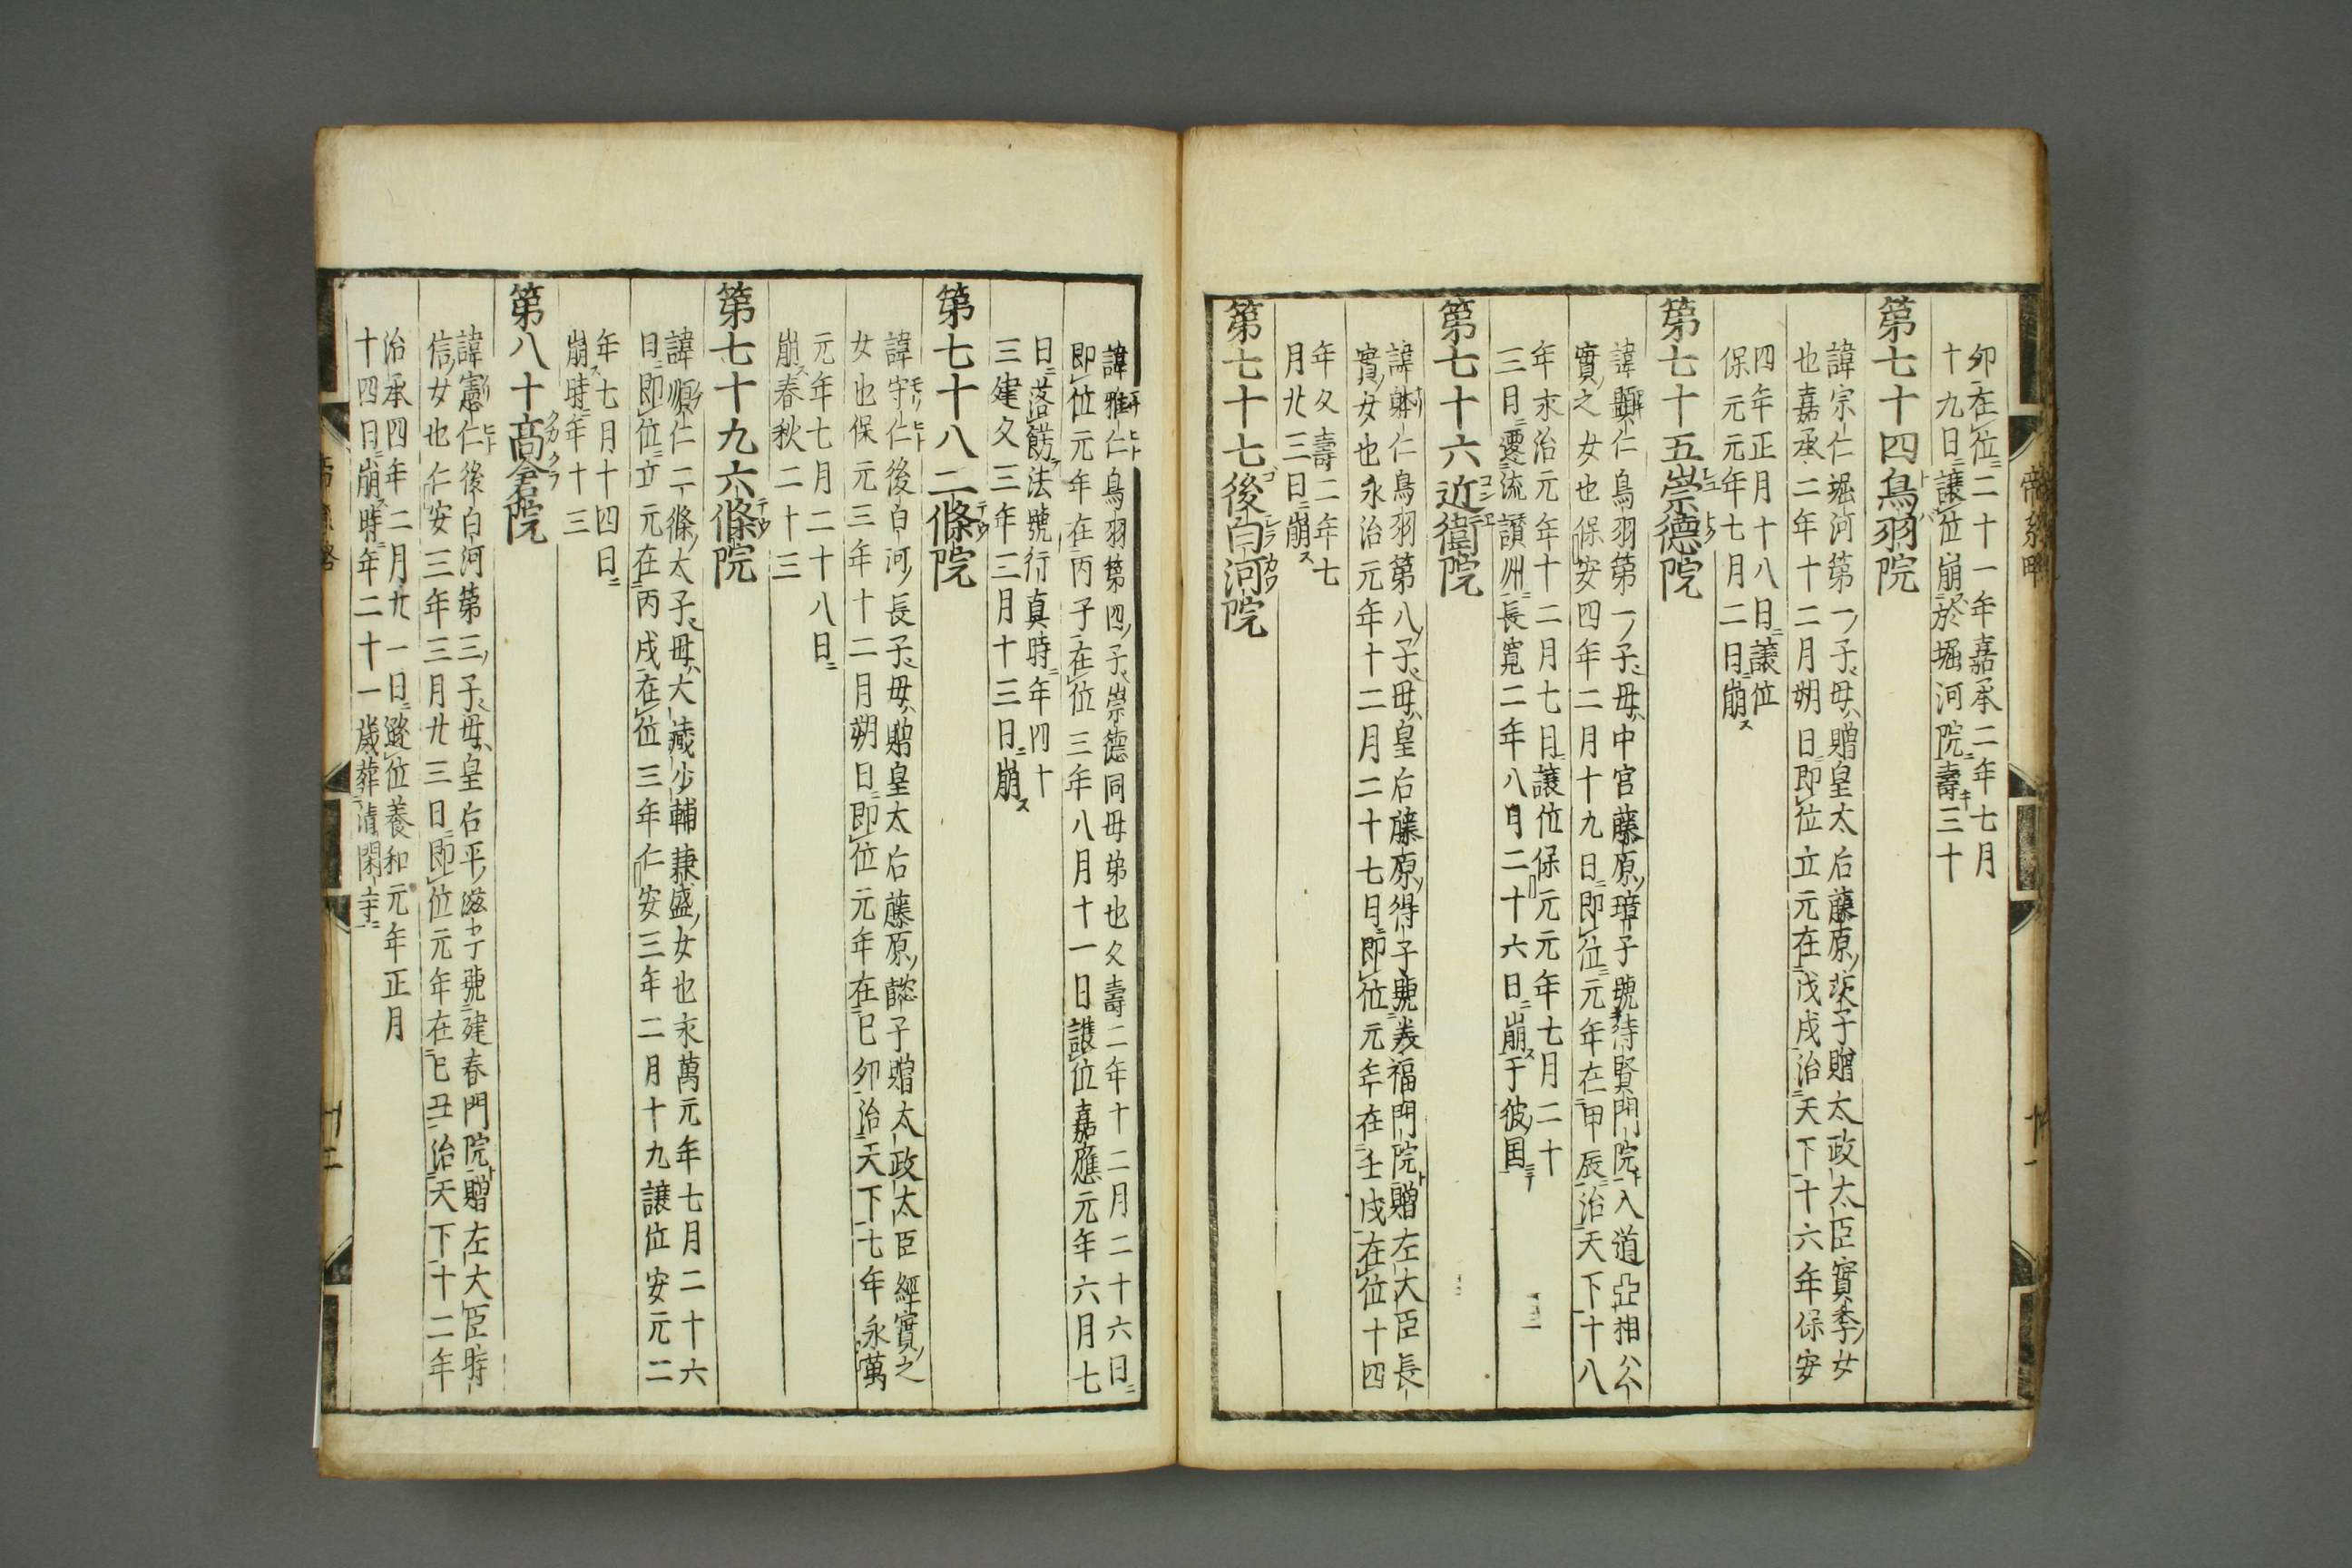 卯在位二十一年嘉承二年七月
十九日譲位崩於堀河院壽三十
第七十四鳥羽院
諱宗仁堀河第一子母贈皇太后藤原茨子贈太政大臣實季女
也嘉承二年十二月朔日即位立元在戊戌治天下十六年保安
四年正月十八日譲位
保元元年七月二日崩
第七十五崇德院
諱顯仁鳥羽第一子母中宮藤原璋子號待賢門院入道亞相公
實之女也保安四年二月十九日即位元年在甲辰治天下十八
年永治元年十二月七日譲位保元元年七月二十
三日遷流讃州長寛二年八月二十六日崩于彼国
第七十六近衛院
諱躰仁鳥羽第八子母皇后藤原得子號美福門院贈左大臣長
實女也永治元年十二月二十七日即位元年在壬戌在位十四
年久壽二年七
月廿三日崩
第七十七後白河院
諱雅仁鳥羽第四子崇德同母弟也久壽二年十二月二十六日
即位元年在丙子在位三年八月十一日譲位嘉應元年六月七
日落餝法號行真時年四十
三建久三年三月十三日崩
第七十八二條院
諱守仁後白河長子母贈皇太后藤原懿子贈太政太臣經實之
女也保元三年十二月朔日即位元年在己卯治天下七年永萬
元年七月二十八日
崩春秋二十三
第七十九六條院
諱順仁二條太子母大藏少輔兼盛女也永萬元年七月二十六
日即位立元在丙戌在位三年仁安三年二月十九譲位安元二
年七月十四日
崩時年十三
第八十高倉院
諱憲仁後白河第三子母皇后平滋子號建春門院贈左大臣時
信女也仁安三年三月廿三日即位元年在己丑治天下十二年
治承四年二月廿一日遜位養和元年正月
十四日崩時年二十一歳葬清閑寺